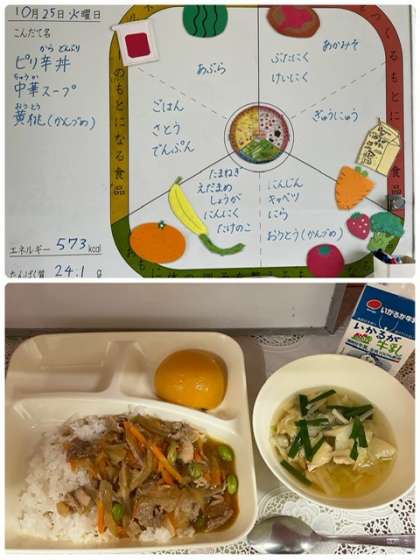 10月25日火曜日
こんだて名
から どんぶり
ピリ辛丼
ちゅうか
中華スープ
おうとう
黄桃(かんづめ)
エネルギー 573 kcal
たんぱく質 24.1 g
のもとになる食品
つくるもとになる食品
あぶら
ごはん
さとう
でんぷん
あかみそ
ぶたにく
けいにく
ぎゅうにゅう
たまねぎ
えだまめ
しょうが
にんにく
たけのこ
にんじん
キャベツ
にら
おうとう(かんづめ)
いかるが牛乳
いかるが
牛乳